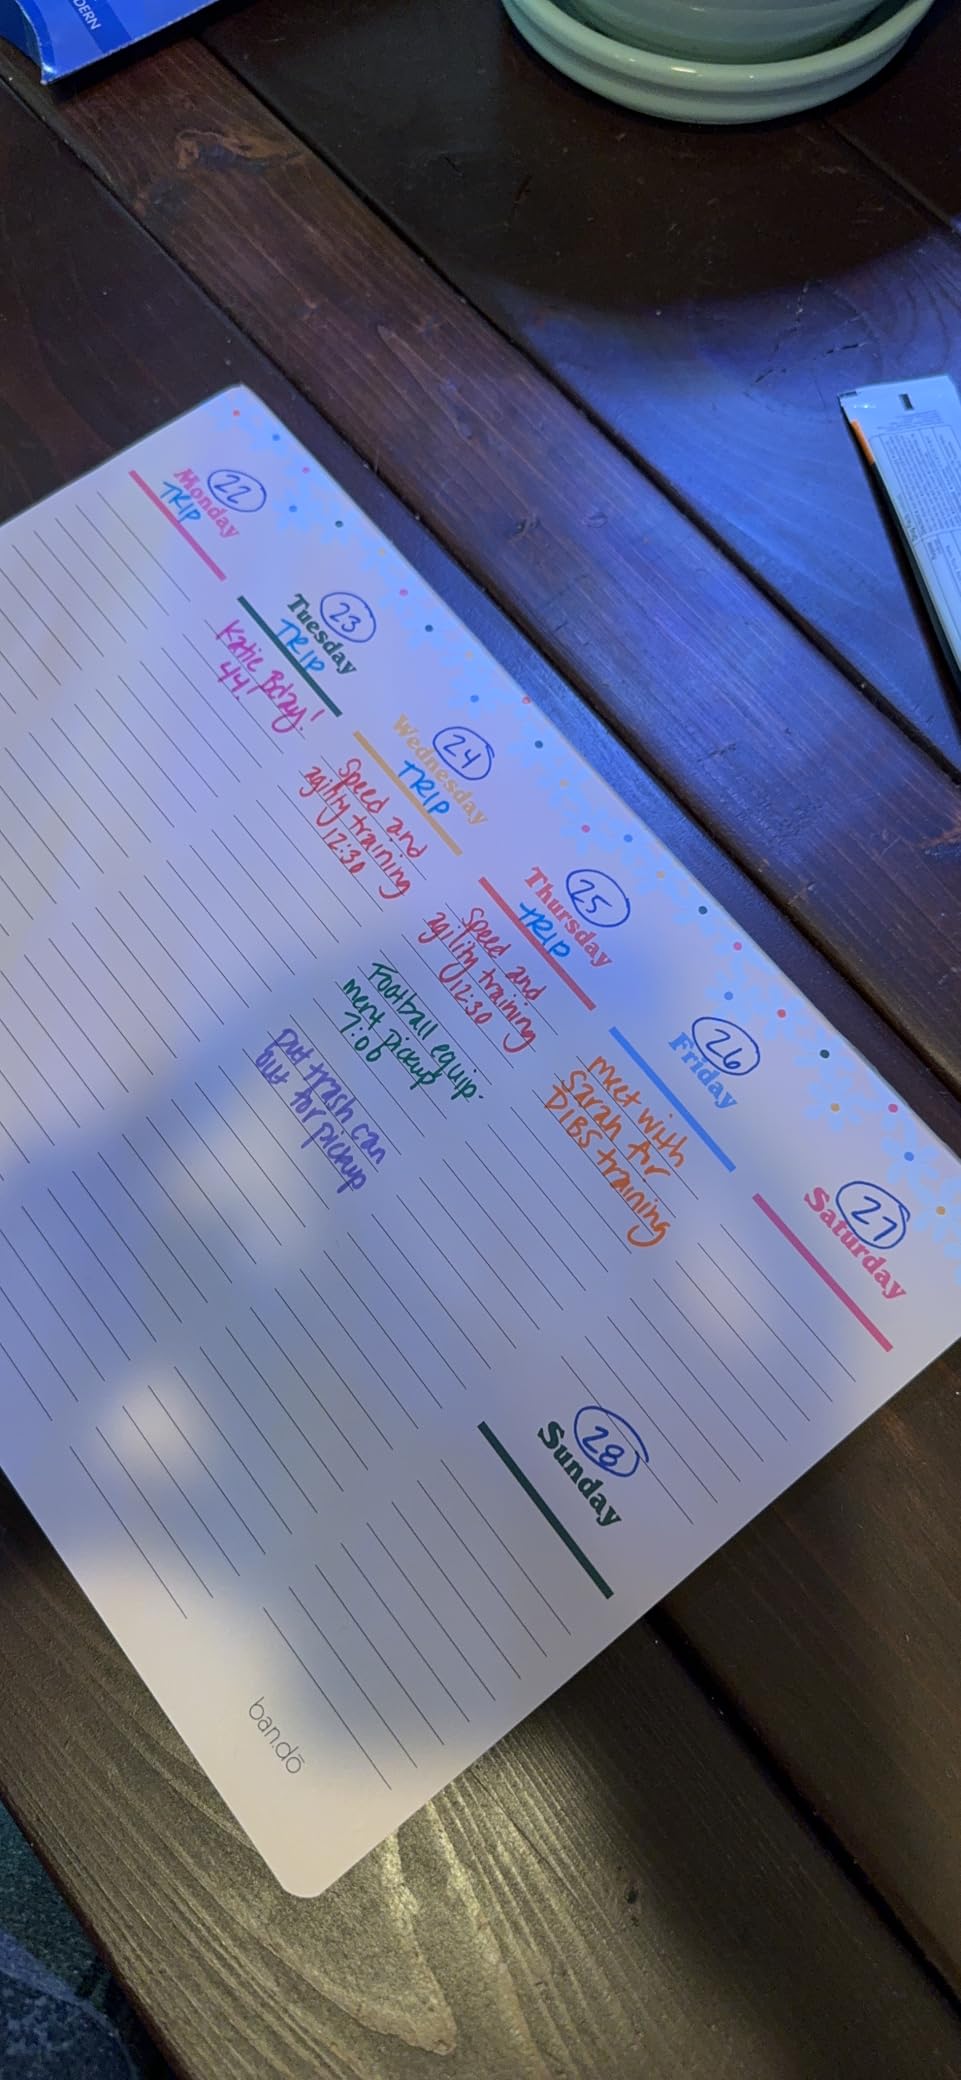 DERN
22
Monday
TRIP
23
Tuesday
TRIP
Katie Bday!
44!
24
Wednesday
TRIP
Speed and
agility training
12:30
25
Thursday
TRIP
Speed and
agility training
12:30
Football equip-
ment pickup
7:00
Put trash can
out for pickup
26
Friday
Meet with
Sarah for
DIBS training
27
Saturday
28
Sunday
ban.dō